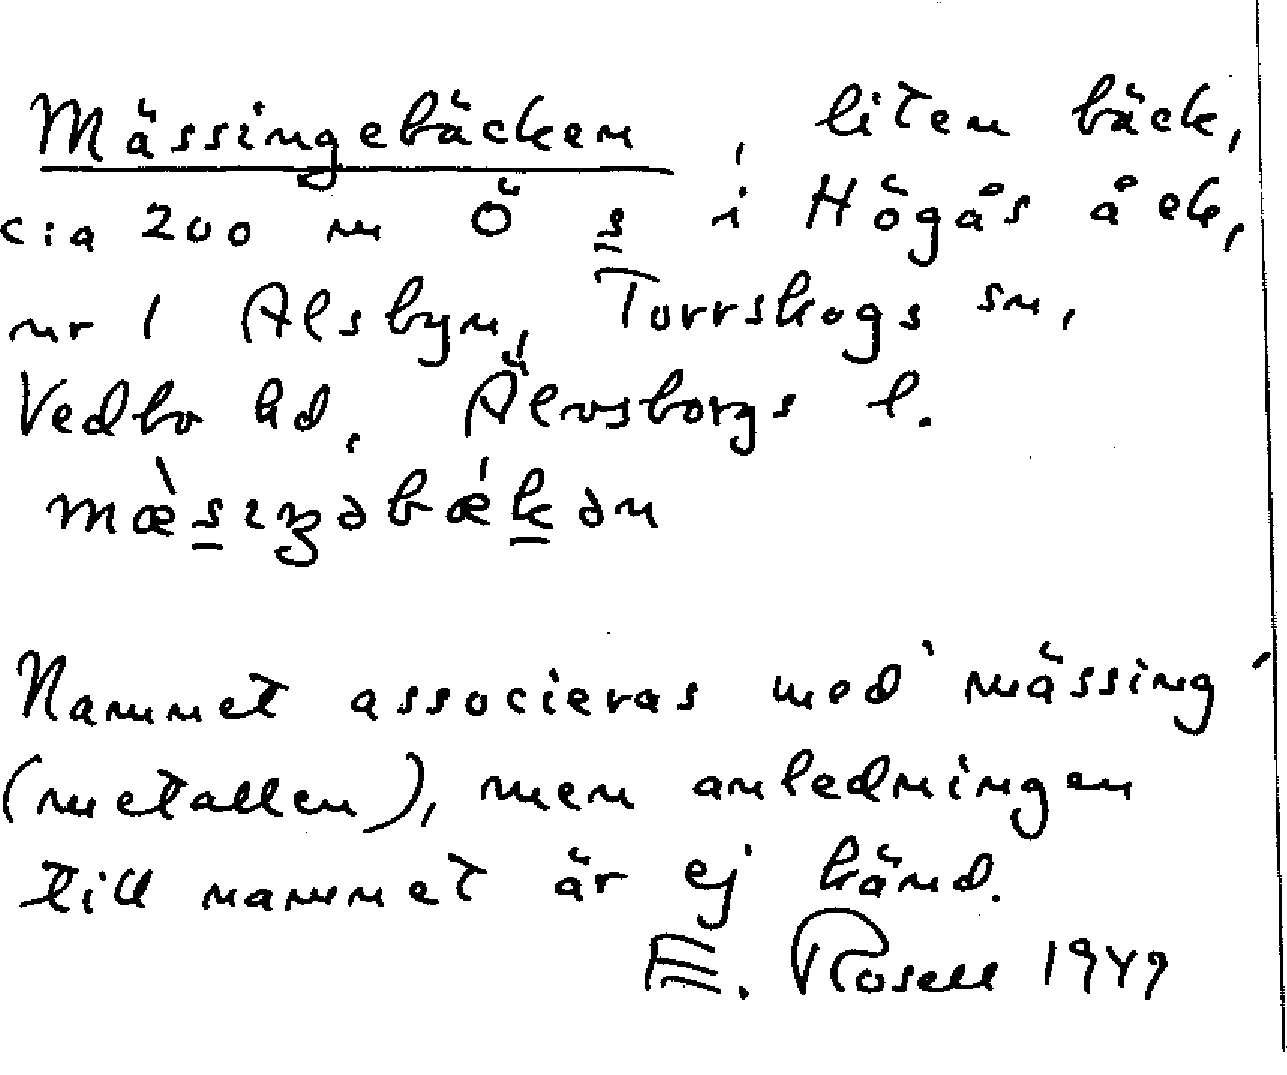 Mässingebäcken, liten bäck,
cia 200 m Ö s i Högås åck,
nr 1 Alsbyn, Torrskogs sn,
Vedbo hd, Älvsborgs l.
mæ̀sıŋəbǽkən
Namnet associeras med mässing
(metallen), men anledningen
till namnet är ej känd.
E. Rosell 1949